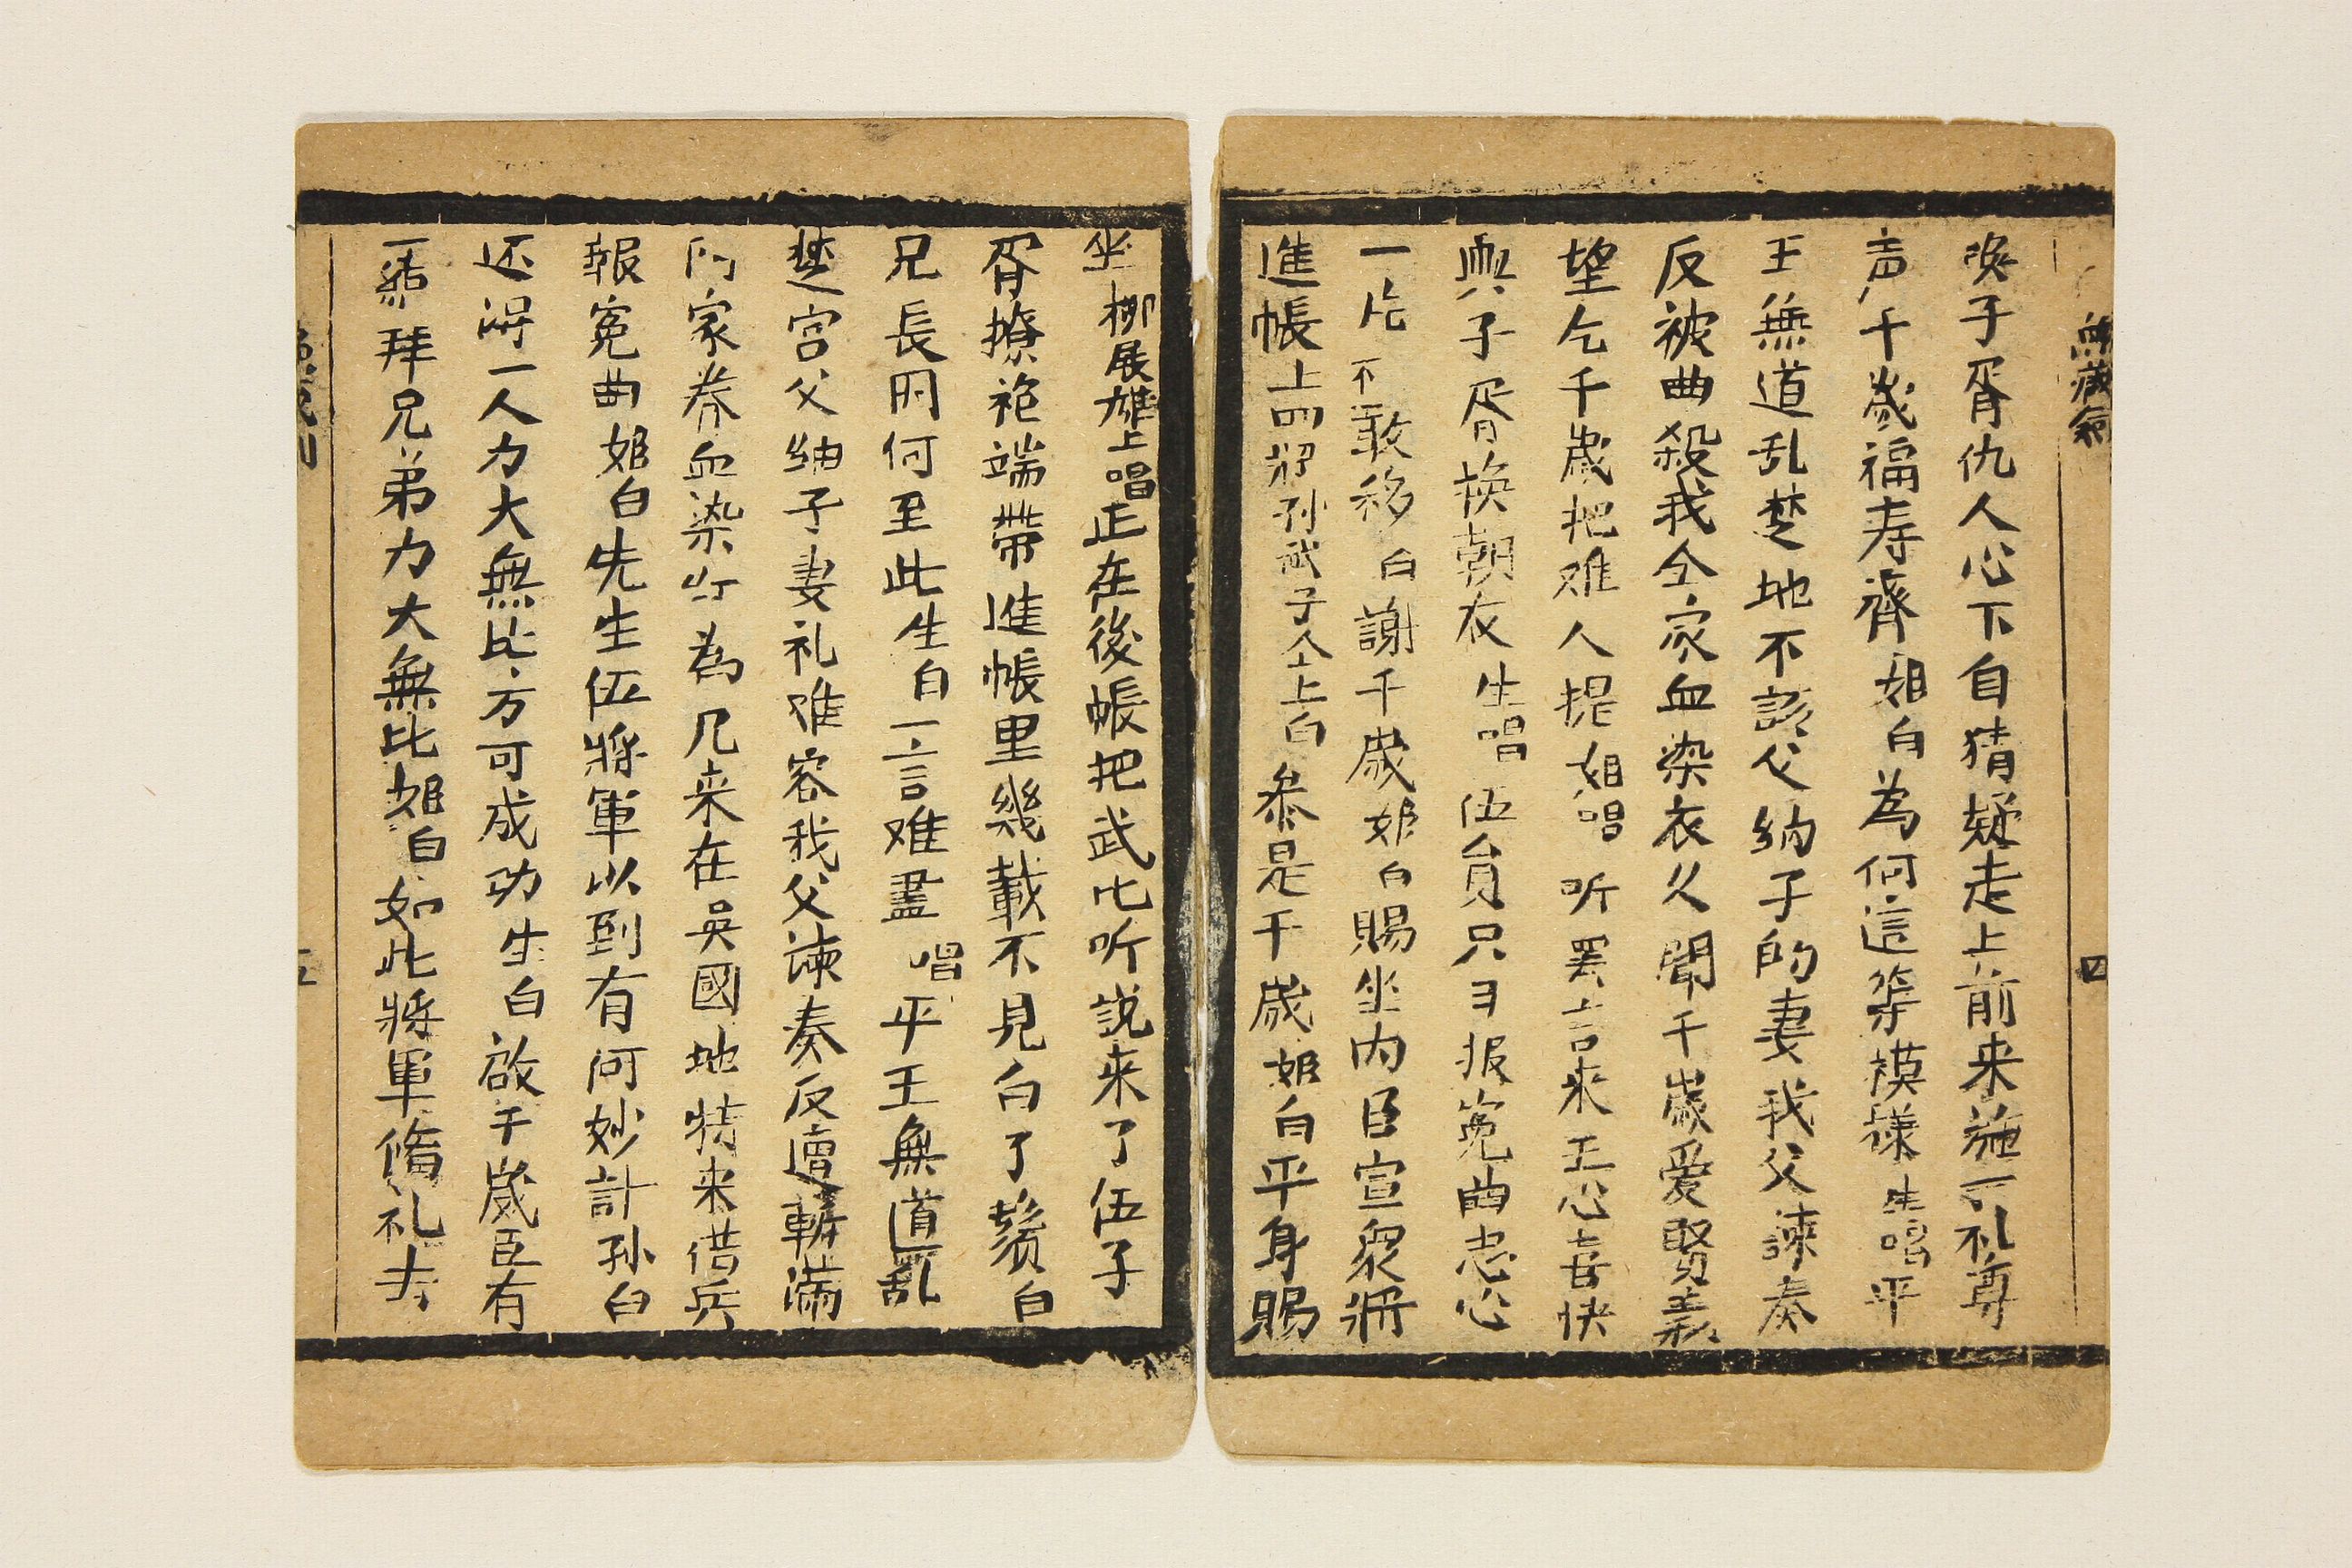 喚子胥仇人心下自猜疑走上前来施一礼尊
声千歲福寿齊姬白為何這等模樣生唱平
王無道乱楚地不該父納子的妻我父諫奏
反被曲殺我仝家血染衣久聞千歲爱賢義
望乞千歲把难人提姬唱听罢言来王心喜快
與子胥换朝衣生唱伍員只报寃曲忠心
一片不敢移白謝千歲姬白賜坐内臣宣眾將
進帳上四將孙武子仝上白叅是千歲姬白平身賜
坐柳展雄上唱正在後帳把武比听説来了伍子
胥撩袍端帶進帳里幾載不見白了鬚白
兄長因何至此生白一言难盡唱平王無道乱
楚宫父納子妻礼难容我父諫奏反遭斬满
门家眷血染紅為几来在吳國地特来借兵
報寃曲姬白先生伍將軍以到有何妙計孙白
还得一人力大無比方可成功生白啟千歲臣有
一結拜兄弟力大無比姬白如此將軍偹礼去
四
五